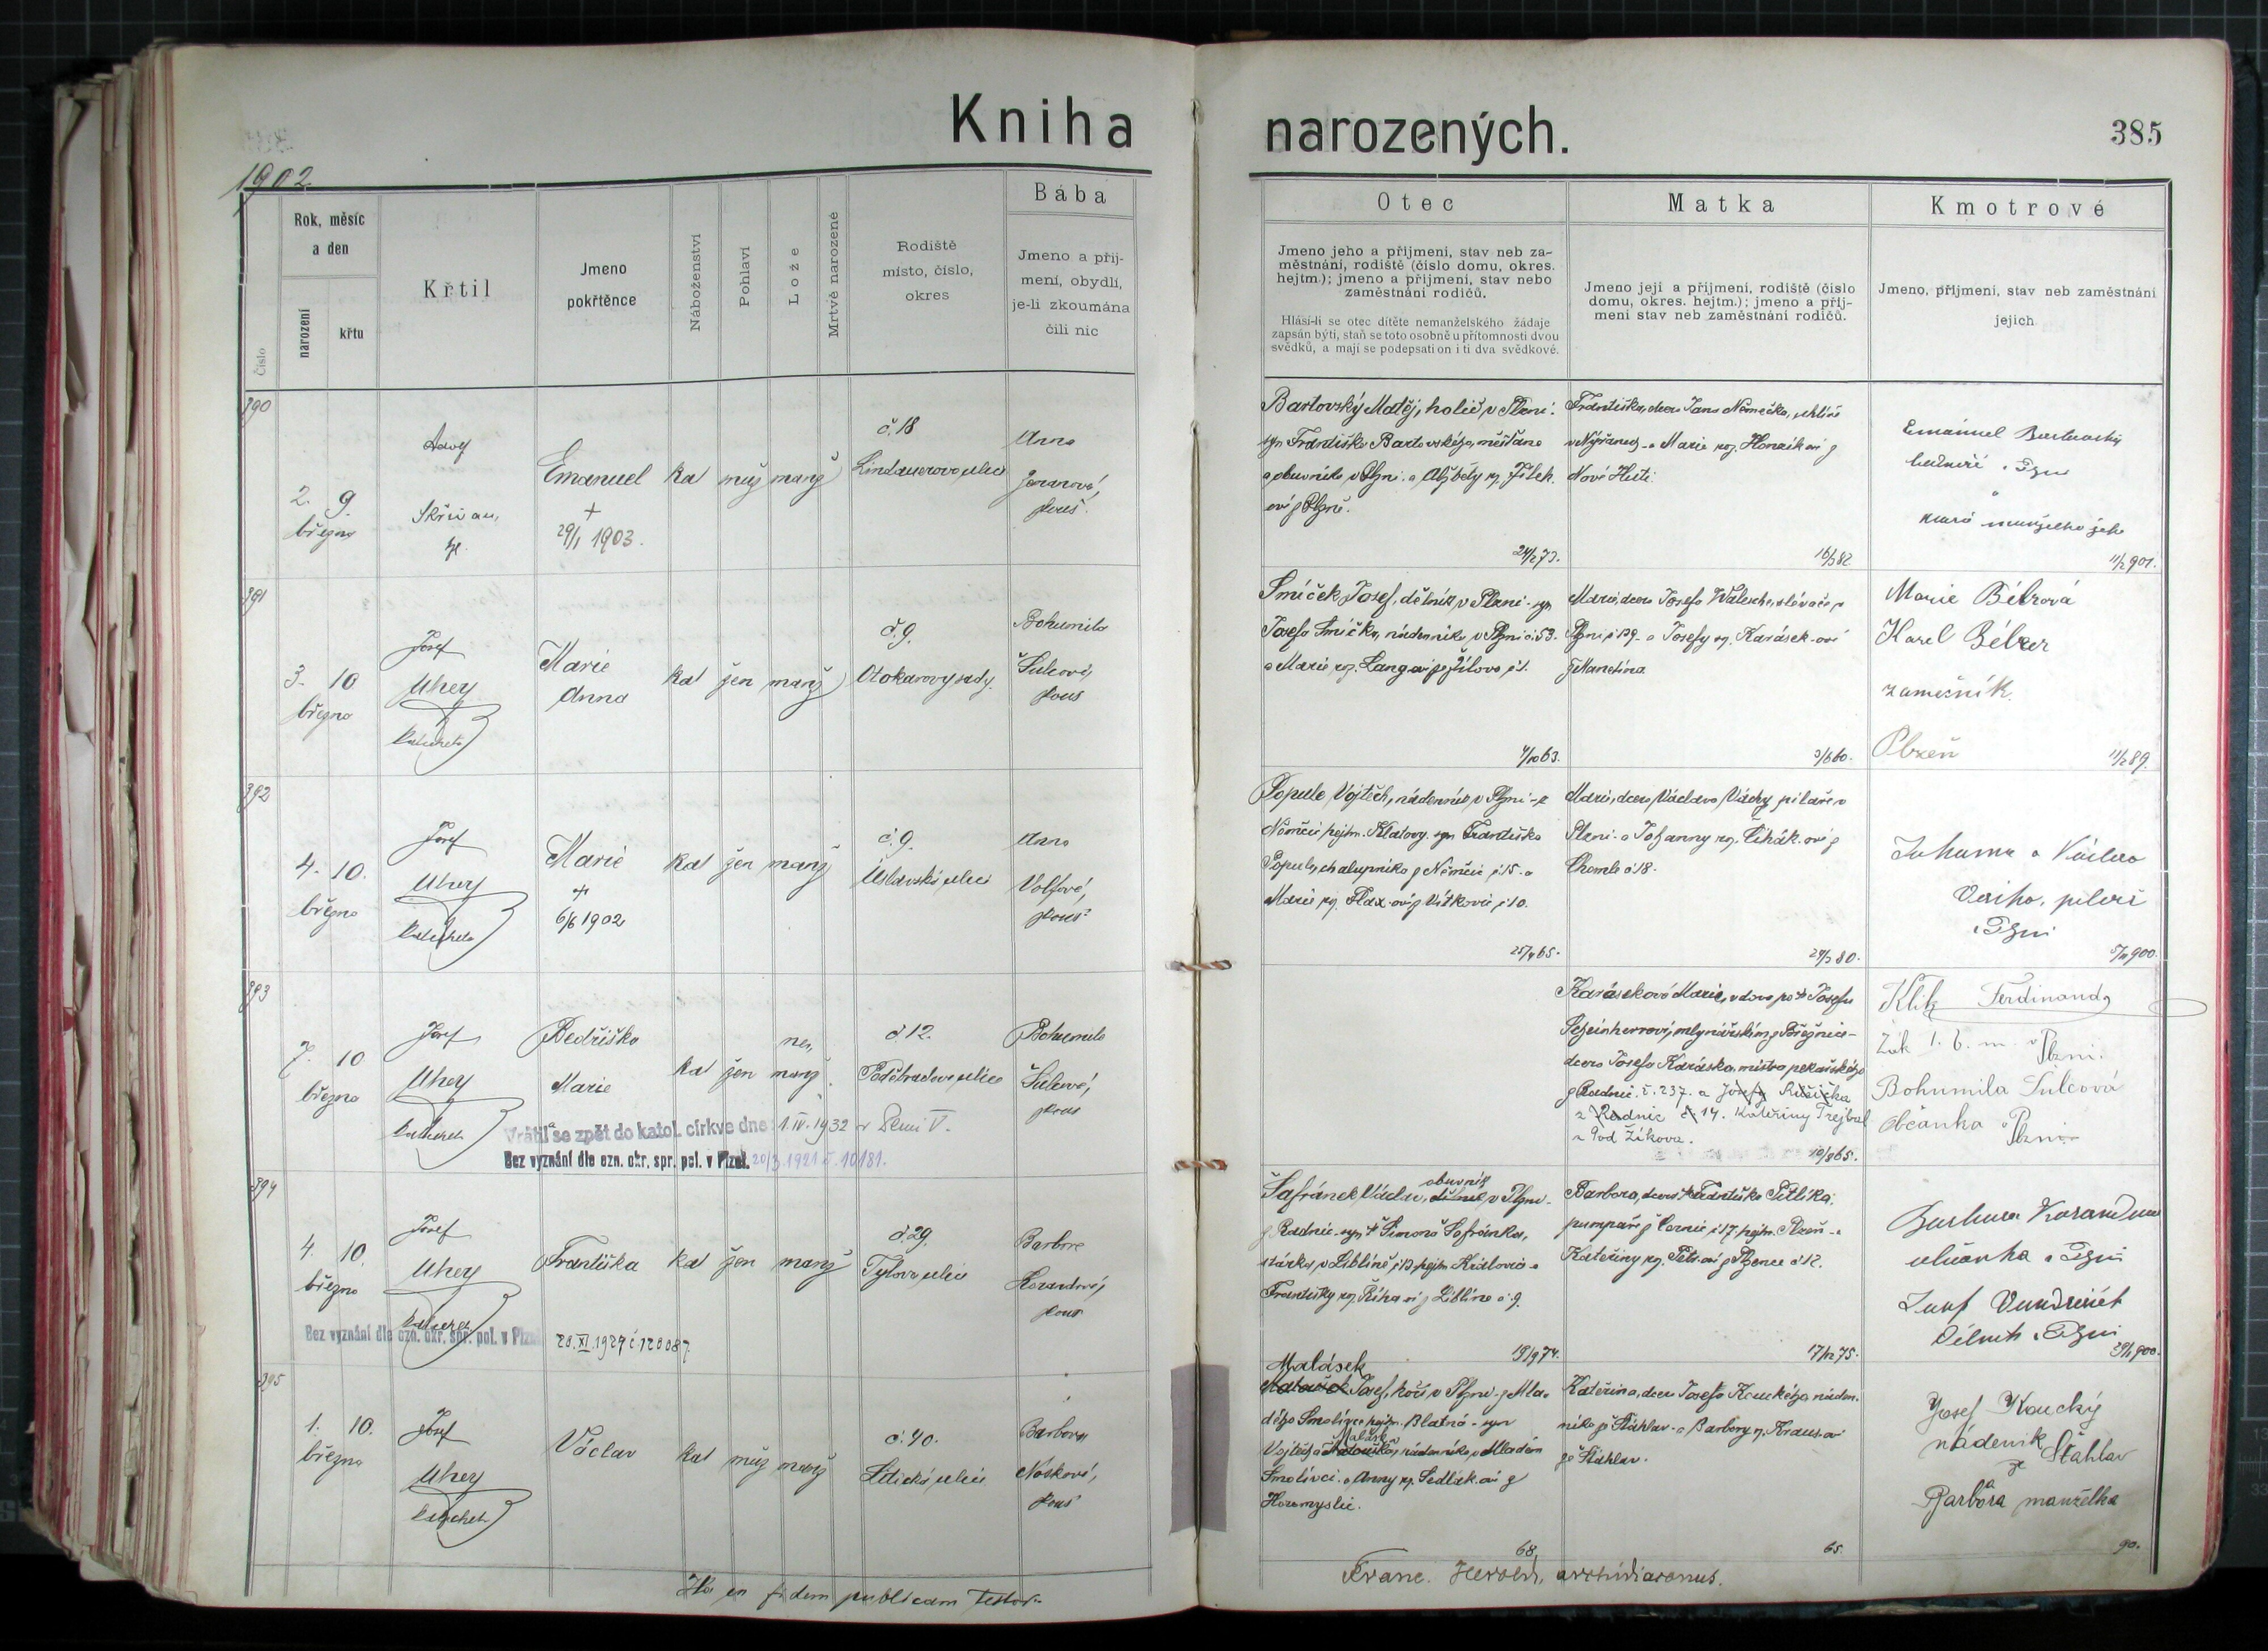 Kniha
narozených.
385
1902
Číslo
Rok, měsíc
a den
narození
křtu
Křtil
Jmeno
pokřtěnce
Náboženství
Pohlaví
Lože
Mrtvě narozené
Rodiště
místo, číslo,
okres
Bába
Jmeno a příj-
mení, obydlí,
je-li zkoumána
čili nic
Otec
Jmeno jeho a příjmení, stav neb za-
městnání, rodiště (číslo domu, okres.
hejtm.); jmeno a příjmení, stav nebo
zaměstnání rodičů.
Hlásí-li se otec dítěte nemanželského žádaje
zapsán býti, staň se toto osobně u přítomnosti dvou
svědků, a mají se podepsati on i ti dva svědkové.
Matka
Jmeno její a příjmení, rodiště (číslo
domu, okres. hejtm.); jmeno a příj-
mení stav neb zaměstnání rodičů.
Kmotrové
Jmeno, příjmení, stav neb zaměstnání
jejich
890
2. 9.
března
Adolf
Skřivan,
Emanuel
+
29/1 1903.
kat muž manž
č. 18
Lindauerova ulice
Anna
zkouš.
Bartovský Matěj, holič v Plzni.
syn Františka Bartovského, měšťana
a obuvníka v Plzni a Alžběty roz. Jílek.
ové z Plzně.
24/2 73.
Františka, dcera Jana Němečka,
v Nýřanech a Marie roz. Honzík ové z
Nové Huti.
16/3 82
Emanuel Bartovský
v Plzni
a
manželka jeho
11/2 901.
891
3. 10
března
Josef
Uhey
katecheta
Marie
Anna
kat žen manž
č. 9.
Otokarovy sady.
Bohumila
Šulcová,
zkouš
Smíček Josef, dělník v Plzni - syn
Josefa Smíčka, nádenníka v Plzni č. 53.
a Marie roz. Lang ové ze Žilova č 1.
4/10 63.
Marie, dcera Josefa Walesche, slévače v
Plzni č 139 - a Josefy roz. Karásek-ové
z Mandína.
3/6 60.
Marie Bélzrová
Karel Bélzer
zámečník
Plzeň
11/2 89.
892
4. 10.
března
Josef
Uhey
katecheta
Marie
+
6/6 1902
kat žen manž
č. 9.
Úslavská ulice
Anna
Volfová,
zkouš
Popule Vojtěch, nádenník v Plzni - z
Němčic hejtm. Klatovy. syn Františka
Popule, chalupníka z Němčic č 15. a
Marie roz. Flax-ové z Vítkovic č 10.
25/4 65.
Marie, dcera Václava Váchy pilaře v
Plzni - a Johanny roz. Čihák-ové z
Chomle č 18.
24/3 80.
Johanna a Václav
Vácha, pilař
v Plzni
5/11 900.
893
7. 10
března
Josef
Uhey
katecheta
Bedřiška
Marie
kat žen manž.
ne,
č 12.
Poděbradova ulice
Bohumila
Šulcová,
zkouš
Vrátila se zpět do katol. církve dne 1. IV. 1932 v Plzni V.
Bez vyznání dle ozn. okr. spr. pol. v Plzni. 20/3. 1921 č. 10181.
Karásková Marie, vdova po + Josefu
Scheinherrovi, mlynářském z Březnice -
dcera Josefa Karáska, mistra pekařského
z Radnic č. 237. a Josefy Růžička
z Radnic č. 14. Kateřiny Trejbal
z Pod Žikova.
19/8 65.
Klik Ferdinand
Žák 1. b. m. v Plzni.
Bohumila Šulcová
občanka v Plzni
894
4. 10.
března
Josef
Uhey
katecheta
Františka
kat žen manž
č. 29.
Tylova ulice
Barbora
Korandová,
zkouš
Bez vyznání dle ozn. okr. spr. pol. v Plzni
20. XI. 1929 č. 120087.
obuvník
Šafránek Václav, dělník v Plzni -
z Radnic - syn + Šimona Šafránka,
stárka, v Liblíně č 13 hejtm. Kralovice a
Františky roz. Říha ové z Liblína č. 9.
19/9 74.
Barbora, dcera + Františka Petlíka,
pumpaře z Černic č 17, hejtm. Plzeň - a
Kateřiny roz. Petr-ové z Plzence č 12.
17/12 75.
Barbora Korandová
občanka v Plzni
Josef
Dělník v Plzni
29/1 900.
895
1. 10.
března
Josef
Uhey
katecheta
Václav
kat muž manž
č. 40.
Litická ulice
Barbora
Nosková,
zkouš
Malásek
Matoušek Josef, kočí v Plzni - z Mla-
dého Smolivce hejtm. Blatná - syn
Malásk
Vojtěcha Matouška, nádenníka, v Mladém
Smolivci - a Anny roz. Sedlák-ové z
Horomyslic.
68.
Kateřina, dcera Josefa Kouckého náden-
níka ze Šťáhlav - a Barbory r. Kraus-ové
ze Šťáhlav.
65.
Josef Koucký
nádeník
z Šťahlav
Barbora manželka
90.
Ita in fidem publicam testor.
Franc. Herold, archidiaconus.